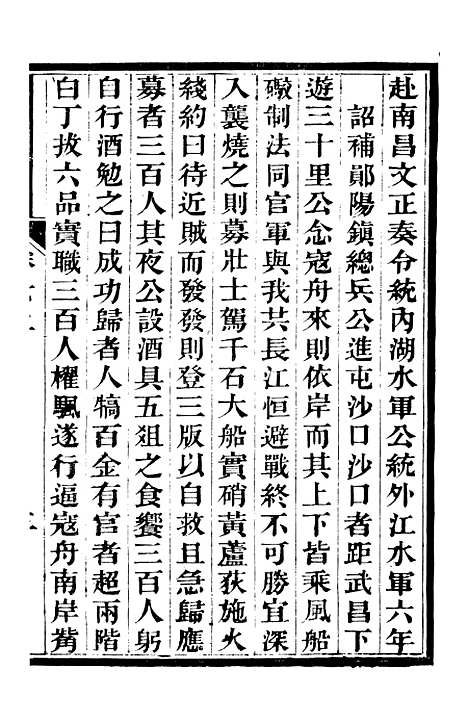 赴南昌文正奏令統內湖水軍公統外江水軍六年
詔補鄖陽鎮總兵公進屯沙口沙口者距武昌下
遊三十里公念寇舟來則依岸而其上下皆乘風船
礮制法同官軍與我共長江恒避戰終不可勝宜深
入襲燒之則募壯士駕千石大船實硝黃蘆荻施火
綫約曰待近賊而發發則登三版以自救且急歸應
募者三百人其夜公設酒具五俎之食饗三百人躬
自行酒勉之曰成功歸者人犒百金有官者超兩階
白丁拔六品實職三百人櫂颿遂行逼寇舟南岸觜